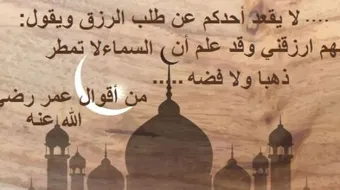 .... لا يقعد أحدكم عن طلب الرزق ويقول:
هم ارزقني وقد علم أن السماءلا تمطر
ذهبا ولا فضه .....
من أقوال عمر رضي
الله عنه